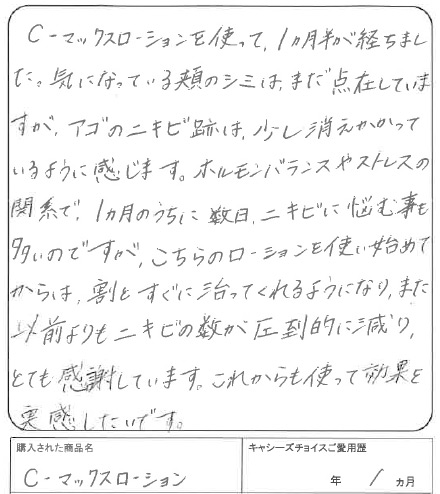 C-マックスローションを使って、1ヵ月半が経ちまし
た。気になっている頬のシミは、まだ点在していま
すが、アゴのニキビ跡は、少し消えかかって
いるように感じます。ホルモンバランスやストレスの
関係で、1ヵ月のうちに数日、ニキビに悩む事も
多いのですが、こちらのローションを使い始めて
からは、割とすぐに治ってくれるようになり、また
以前よりもニキビの数が圧倒的に減り、
とても感謝しています。これからも使って効果を
実感したいです。
購入された商品名
C-マックスローション
キャシーズチョイスご愛用歴
年 1 ヵ月